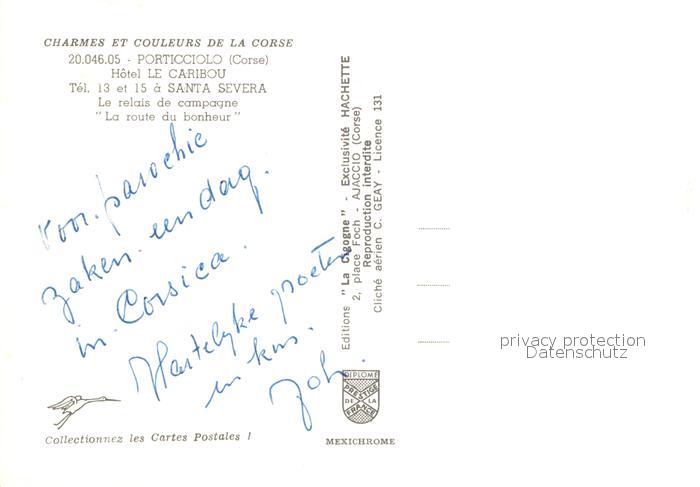 CHARMES ET COULEURS DE LA CORSE
20.046.05 - PORTICCIOLO (Corse)
Hôtel LE CARIBOU
Tél. 13 et 15 à SANTA SEVERA
Le relais de campagne
"La route du bonheur"
voor parochie
zaken een dag.
in Corsica.
Hartelyke poeten
en kus.
Joh.
Editions "La Cigogne" - Exclusivité HACHETTE
2, place Foch - AJACCIO (Corse)
Reproduction interdite
Cliché aérien C. GEAY - Licence 131
privacy protection
Datenschutz
DIPLOME
PRESTIGE
DE LA
FRANCE
Collectionnez les Cartes Postales !
MEXICHROME